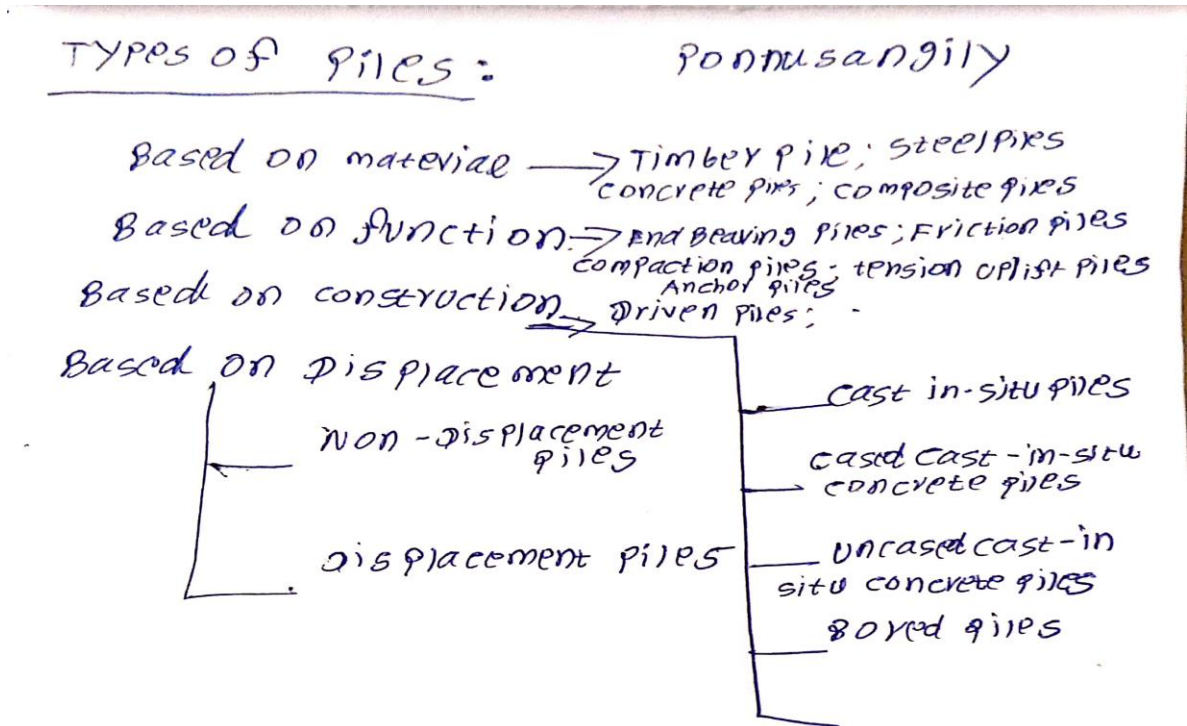 Types of Piles: Ponnusangily
Based on material → Timber pile; Steel Piles
concrete piles; composite piles
Based on function → End Bearing Piles; Friction piles
compaction piles - tension uplift piles
Anchor piles
Based on construction → Driven Piles;
Based on Displacement
Non-Displacement
piles
Displacement piles
cast in-situ piles
cased cast-in-situ
concrete piles
uncased cast-in
situ concrete piles
Bored piles